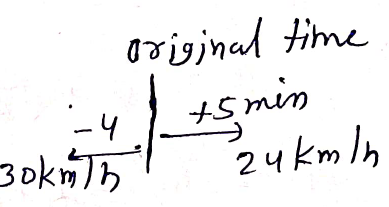 original time
-4 +5 min
30km/h 24km/h